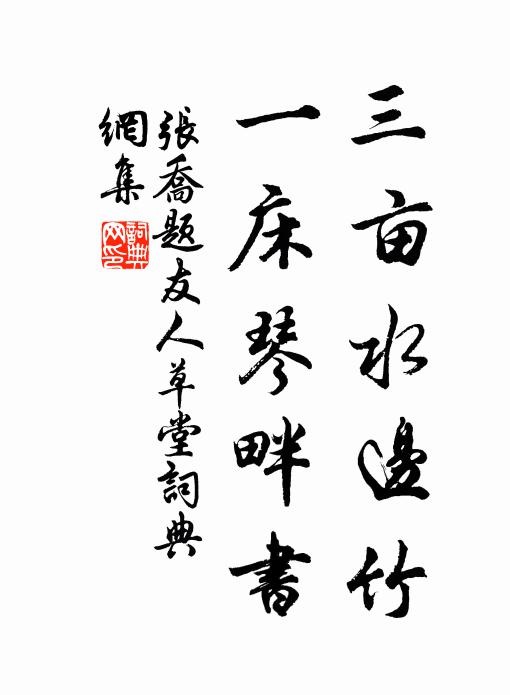 三亩水邊竹
一床琴畔書
張喬題友人草堂詞典
網集
詞典
网印